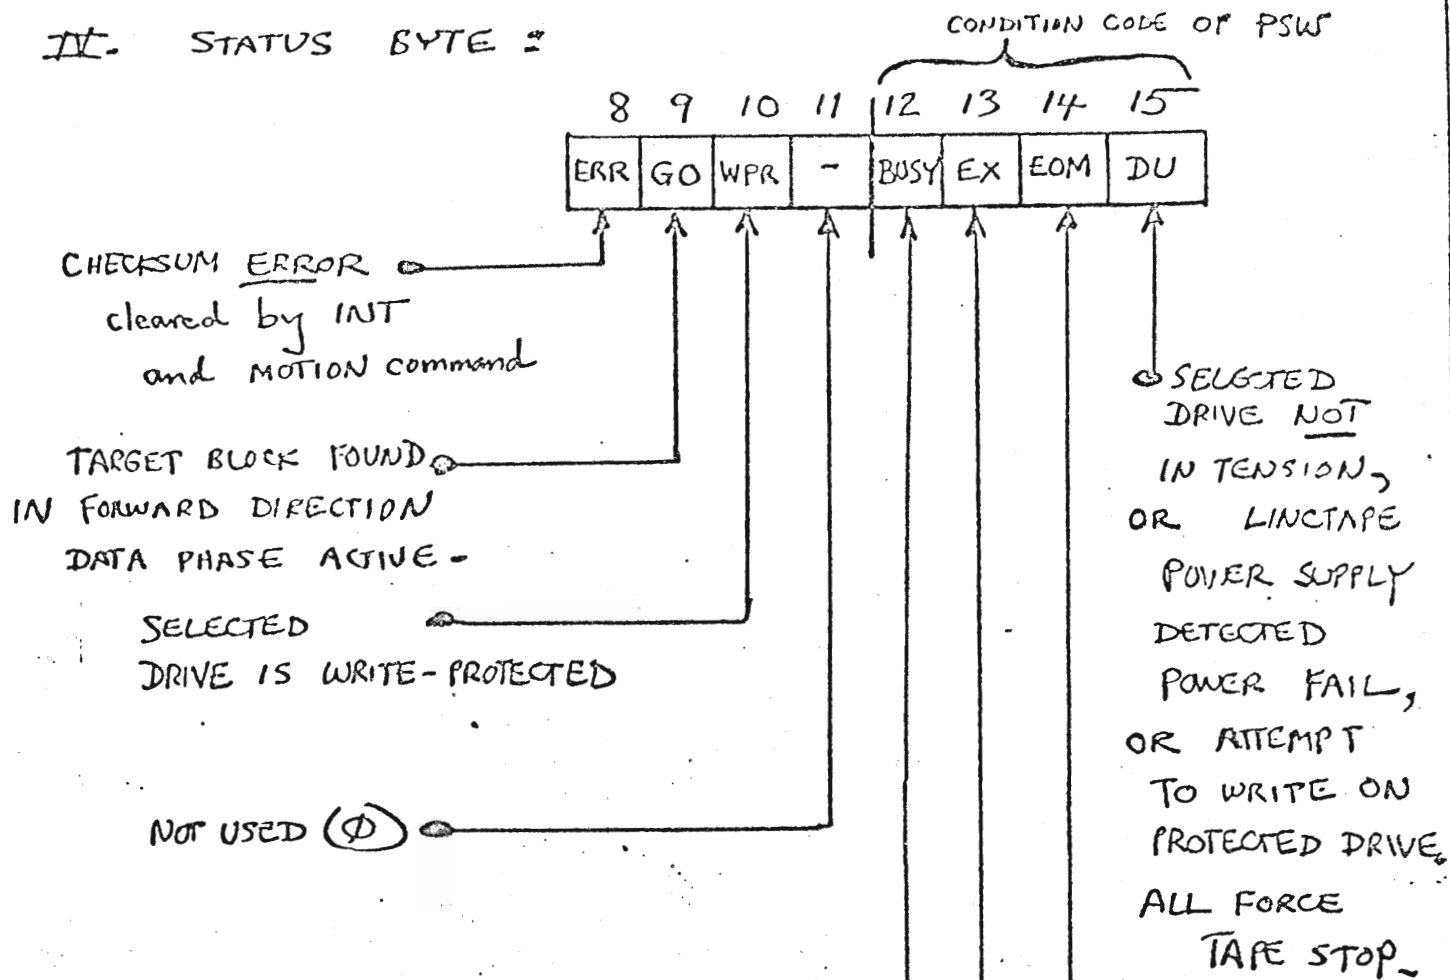 CONDITION CODE OF PSW
IV. STATUS BYTE :
8 9 10 11 12 13 14 15
ERR GO WPR - BUSY EX EOM DU
CHECKSUM ERROR
cleared by INT
and MOTION command
TARGET BLOCK FOUND
IN FORWARD DIRECTION
DATA PHASE ACTIVE -
SELECTED
DRIVE IS WRITE-PROTECTED
NOT USED (Ø)
SELECTED
DRIVE NOT
IN TENSION,
OR LINCTAPE
POWER SUPPLY
DETECTED
POWER FAIL,
OR ATTEMPT
TO WRITE ON
PROTECTED DRIVE.
ALL FORCE
TAPE STOP-